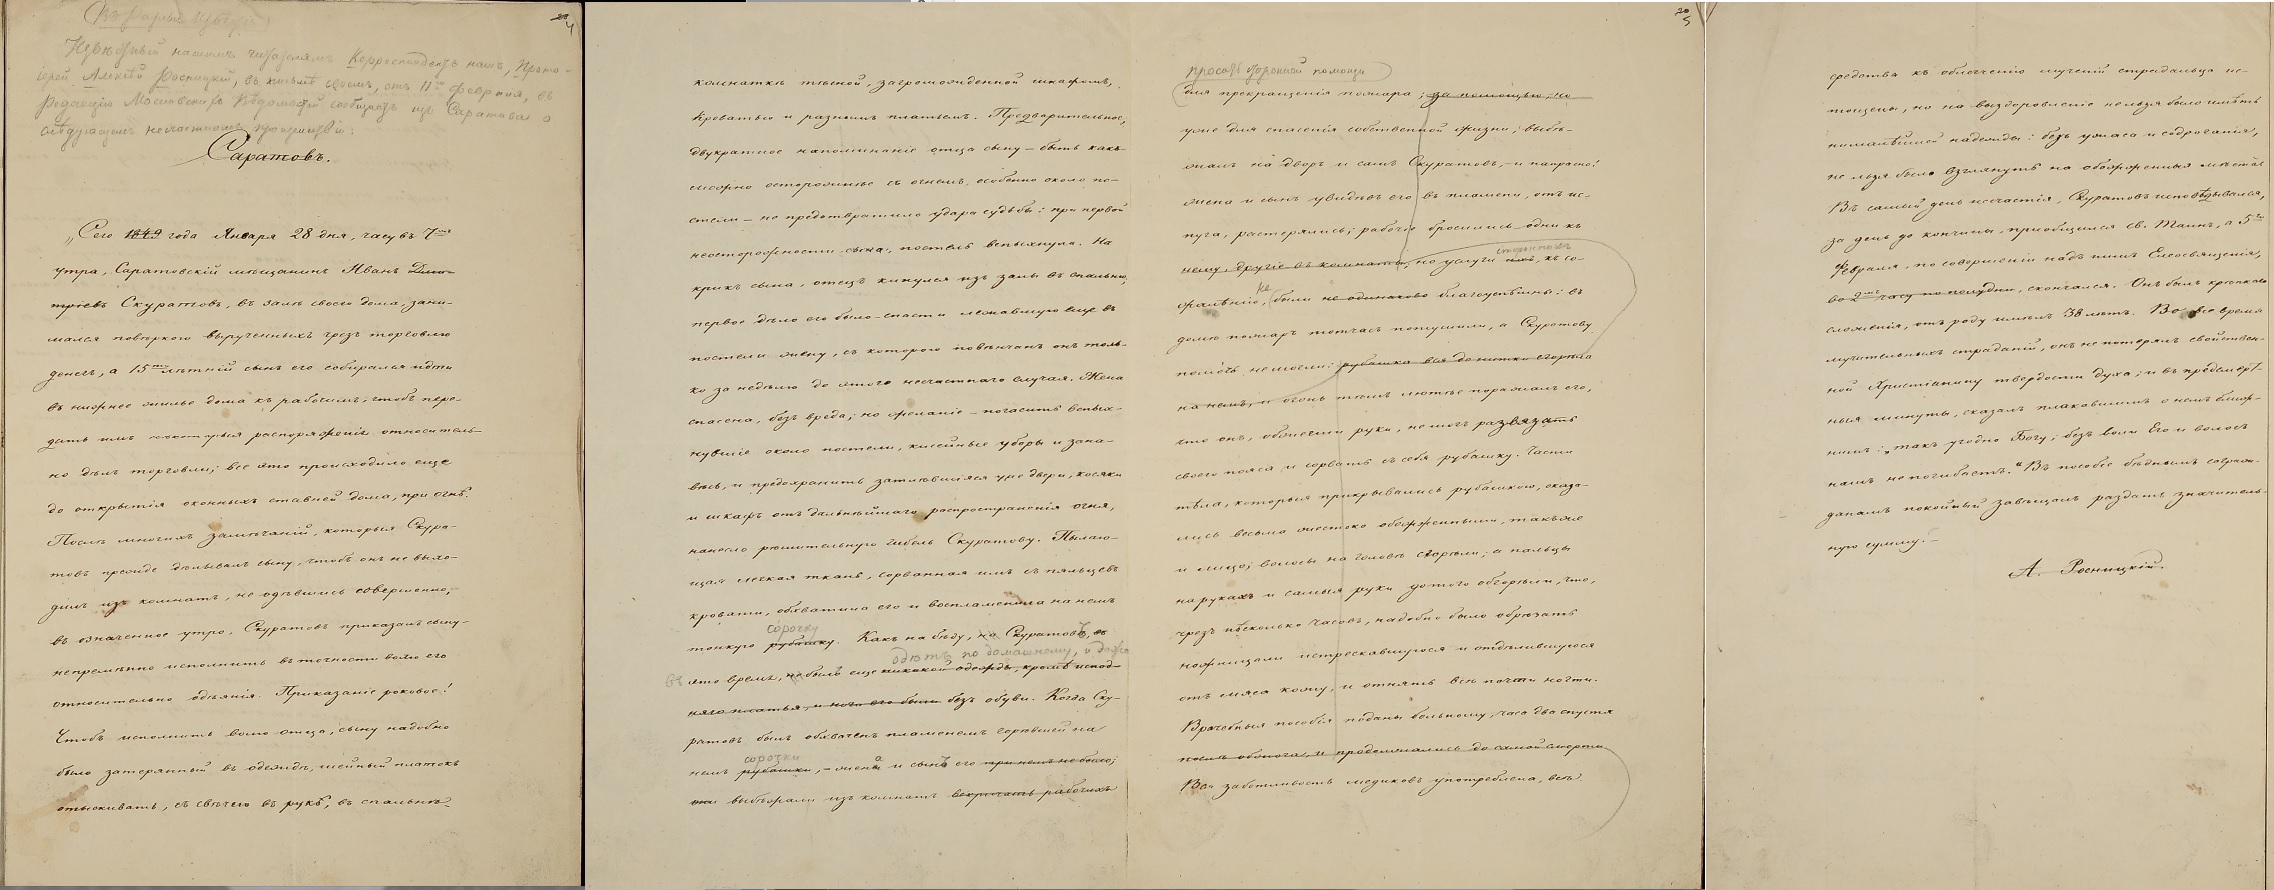 Въ разныя извѣстія
Извѣстный нашимъ читателямъ Корреспондентъ нашъ, Прото-
іерей Алексѣй Росницкій, въ письмѣ своемъ, отъ 11го февраля, въ
Редакцію Московскихъ Вѣдомостей сообщаетъ изъ Саратова о
слѣдующемъ несчастномъ происшествіи:
Саратовъ.
„Сего 1849 года Января 28 дня, часу въ 7мъ
утра, Саратовскій мѣщанинъ Иванъ Дми-
тріевъ Скуратовъ, въ залѣ своего дома, зани-
мался повѣркою вырученныхъ чрезъ торговлю
денегъ, а 15ти лѣтній сынъ его собирался идти
въ нижнее жилье дома къ рабочимъ, чтобъ пере-
дать имъ некоторыя распоряженія относитель-
но дѣлъ торговли; все это происходило еще
до открытія оконныхъ ставней дома, при огнѣ.
Послѣ многихъ замѣчаній, которыя Скура-
товъ прежде дѣлывалъ сыну, чтобъ онъ не выхо-
дилъ изъ комнатъ, не одѣвшись совершенно,
въ означенное утро, Скуратовъ приказалъ сыну-
непремѣнно исполнить въ точности волю его
относительно одѣянія. Приказаніе роковое!
Чтобъ исполнить волю отца, сыну надобно
было затерянный въ одеждѣ, шейный платокъ
отыскивать, съ свѣчею въ рукѣ, въ спальнѣ-
20
4
комнаткѣ тѣсной, загроможденной шкафомъ,
кроватью и разнымъ платьемъ. Предварительное,
двукратное напоминаніе отца сыну – быть какъ
можно осторожнѣе съ огнемъ, особенно около по-
стели – не предотвратило удара судьбы: при первой
неосторожности сына, постель вспыхнула. На
крикъ сына, отецъ кинулся изъ залы въ спальню,
первое дѣло его было – спасти лежавшую еще въ
постели жену, съ которою повѣнчанъ онъ толь-
ко за недѣлю до этого несчастнаго случая. Жена
спасена, безъ вреда; но желаніе – погасить вспых-
нувшіе около постели, кисейные уборы и зана-
вѣсь, и предохранить затлѣвшіяся уже двери, косяки
и шкафъ отъ дальнѣйшаго распространенія огня,
нанесло рѣшительную гибель Скуратову. Пылаю-
щая легкая ткань, сорванная имъ съ пяльцевъ
кровати, обхватила его и воспламенила на немъ
сорочку
тонкую рубашку. Какъ на бѣду, на Скуратовѣ, въ
одѣтъ по домашному, и даже
въ это время, не былъ еще никакой одежды, кромѣ испод-
няго платья, и ноги его были безъ обуви. Когда Ску-
ратовъ былъ обхваченъ пламенемъ горѣвшей на
сорочки
немъ рубашки, – жена и сынъ его при немъ не были;
они выбѣжали изъ комнатъ вскричать рабочихъ
20
5
просить сторонней помощи
для прекращенія пожара; за помощью, но
уже для спасенія собственной жизни, выбѣ-
жалъ на дворъ и самъ Скуратовъ, – и напрасно!
жена и сынъ увидѣвъ его въ пламени, отъ ис-
пуга, растерялись; рабочіе бросились одни къ
нему, другіе въ комнаты; но услуги ихъ, къ со-
не
жалѣнію, были не одинаково благоуспѣшны: въ
домѣ пожаръ тотчасъ потушили, а Скуратову
помочь не могли: рубашка вся до нитки сгорѣла
на немъ, и огонь тѣмъ лютѣе поражалъ его,
что онъ, обжегши руки, не могъ развязать
своего пояса и сорвать съ себя рубашку. Части
тѣла, которыя прикрывались рубашкою, оказа-
лись весьма жестоко обожженными, также
и лицо; волосы на головѣ сгорѣли; а пальцы
на рукахъ и самыя руки до того обгорѣли, что,
чрезъ нѣсколько часовъ, надобно было обрѣзать
ножницами истрескавшуюся и отдѣлившуюся
отъ мяса кожу, и отнять всѣ почти ногти.
Врачебныя пособія поданы больному, часа два спустя
послѣ обжога, и продолжались до самой смерти
Вся заботливость медиковъ употреблена, всѣ
средства къ облегченію мученій страдальца ис-
тощены, но на выздоровленіе нельзя было имѣть
ни малѣйшей надежды: безъ ужаса и содроганія,
не льзя было взглянуть на обожженныя мѣста.
Въ самый день несчастія, Скуратовъ исповѣдывался,
за день до кончины, пріобщился св. Таинъ, а 5го
Февраля, по совершеніи надъ нимъ Елеосвященія,
во 2мъ часу по полудни, скончался. Онъ былъ крѣпкаго
сложенія, отъ роду имѣлъ 38 лѣтъ. Во все время
мучительныхъ страданій, онъ не потерялъ свойствен-
ной Христіанину твердости духа; и въ предсмерт-
ныя минуты, сказалъ плакавшимъ о немъ ближ-
нимъ: „такъ угодно Богу; безъ воли Его и волосъ
нашъ не погибаетъ.“ Въ пособіе бѣднымъ сограж-
данамъ покойный завѣщалъ раздать значитель-
ную сумму. –
А. Росницкій.